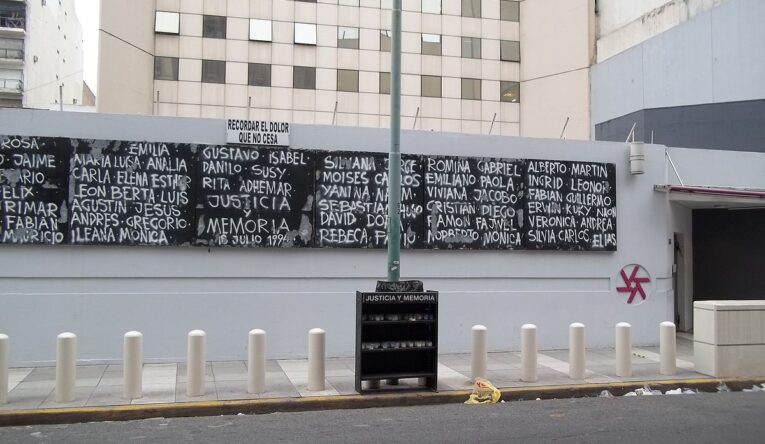 RECORDAR EL DOLOR
QUE NO CESA
ROSA
JAIME
FELIX
FABIAN
MAURICIO
EMILIA
MARIA LUISA ANALIA
CARLA ELENA ESTHER
LEON BERTA LUIS
AGUSTIN JESUS
ANDRES GREGORIO
ILEANA MONICA
GUSTAVO ISABEL
DANILO SUSY
RITA ADHEMAR
JUSTICIA
Y
MEMORIA
18 JULIO 1994
SILVANA JORGE
MOISES CARLOS
YANINA
SEBASTIAN
DAVID
REBECA
ROMINA GABRIEL
EMILIANO PAOLA
VIVIANA JACOBO
CRISTIAN DIEGO
RAMON FAIWEL
NORBERTO MONICA
ALBERTO MARTIN
INGRID LEONOR
FABIAN GUILLERMO
ERWIN KUKY NAON
VERONICA ANDREA
SILVIA CARLOS ELIAS
JUSTICIA Y MEMORIA